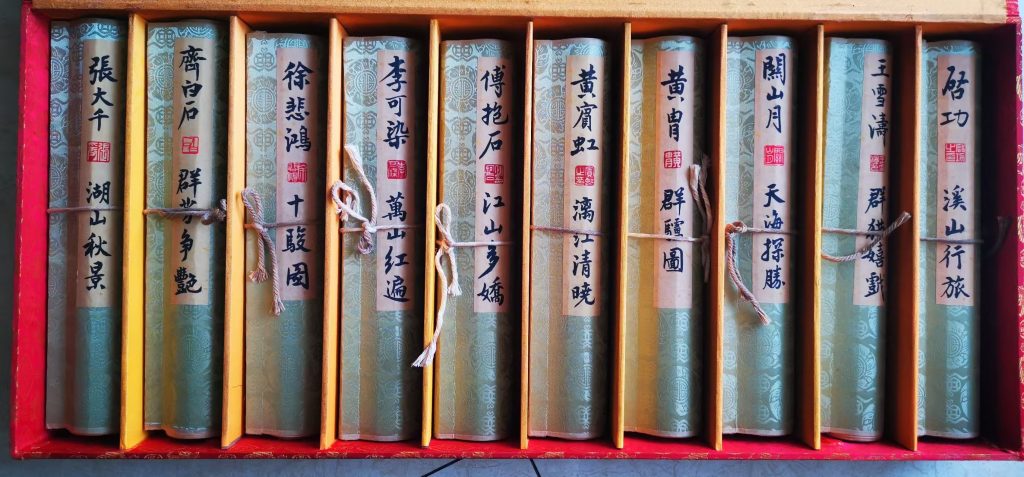 張大千 湖山秋景
齊白石 群芳争艷
徐悲鴻 十駿圖
李可染 萬山紅遍
傅抱石 江山多嬌
黃賓虹 漓江清曉
黃胄 群驢圖
關山月 天海探勝
王雪濤 群猫嬉戲
啓功 溪山行旅